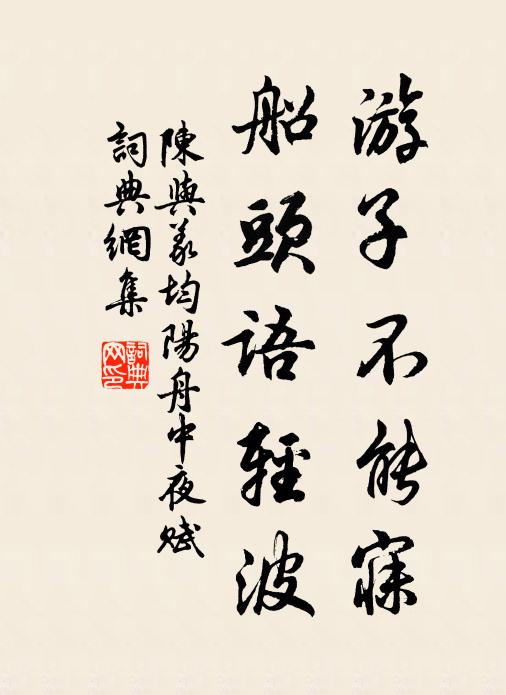 游子不能寐
船頭語輕波
陳與義均陽舟中夜賦
詞典網集
詞典
网印